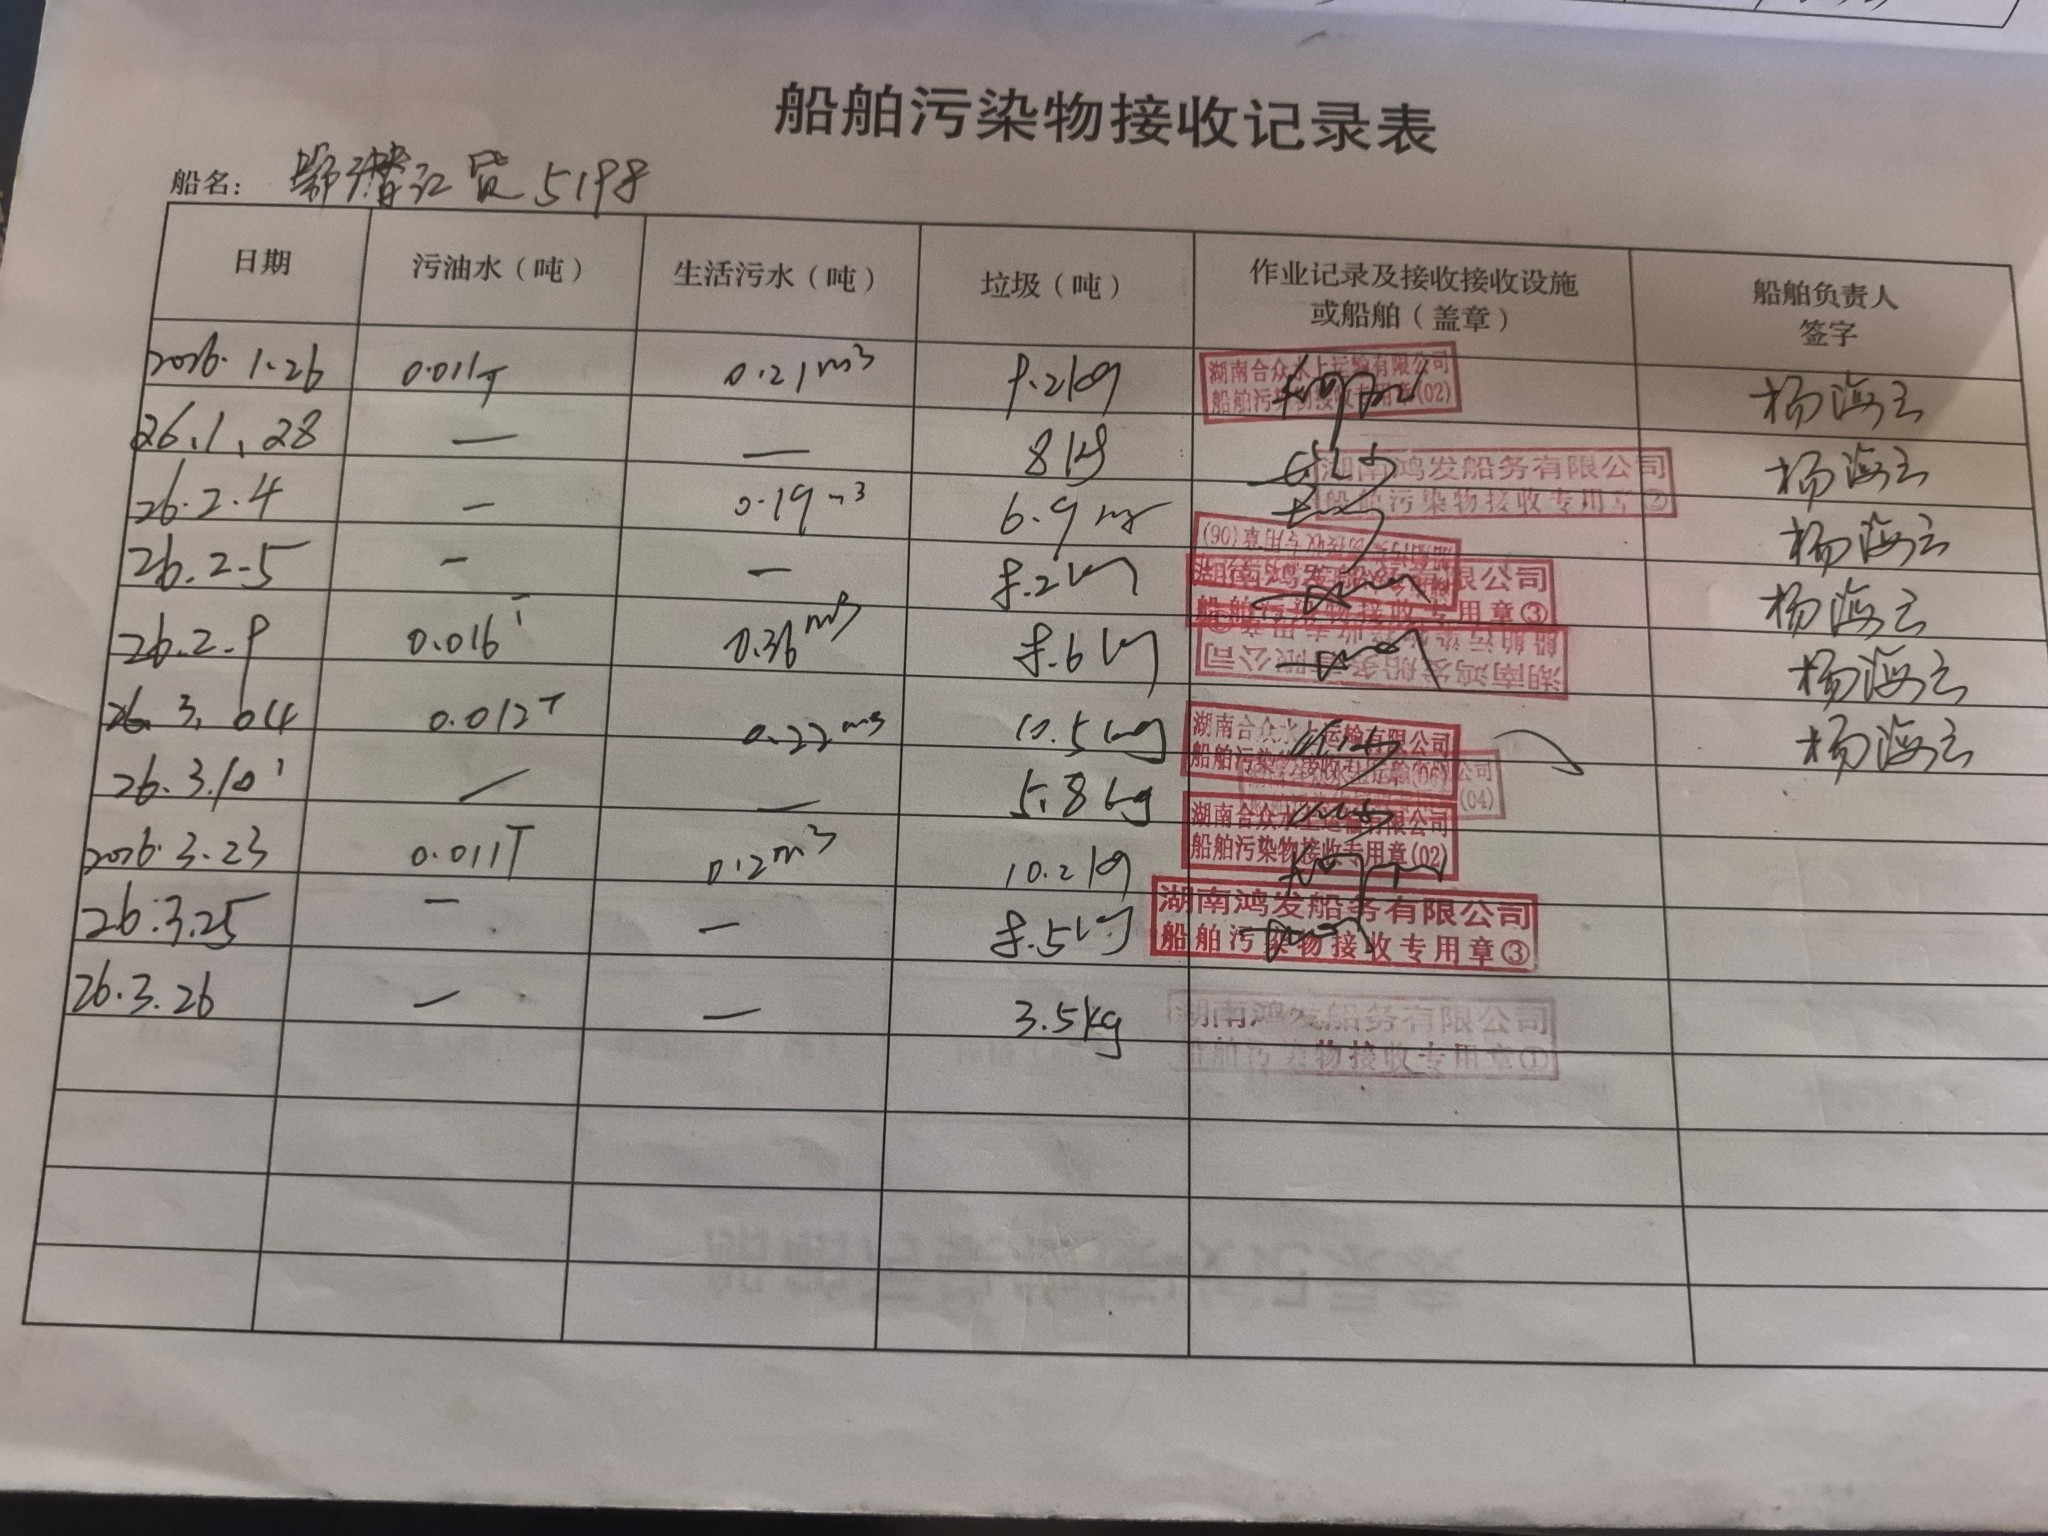 船舶污染物接收记录表
船名： 鄂潜江货5198
日期 污油水（吨） 生活污水（吨） 垃圾（吨） 作业记录及接收接收设施或船舶（盖章） 船舶负责人签字
2026.1.26 0.011T 0.21m³ 9.2kg 湖南合众水上运输有限公司 船舶污染物接收专用章(02) 杨海云
26.1.28 — — 8kg 湖南鸿发船务有限公司 船舶污染物接收专用章② 杨海云
26.2.4 — 0.19m³ 6.9 船舶污染物接收专用章(06) 杨海云
26.2.5 — — 8.2kg 湖南鸿发船务有限公司 船舶污染物接收专用章③ 杨海云
26.2.9 0.016T 0.36m³ 8.6kg 湖南鸿发船务有限公司 船舶污染物接收专用章 杨海云
26.3.04 0.012T 0.22m³ 10.5kg 湖南合众水上运输有限公司 船舶污染物接收专用章(06) 杨海云
26.3.10 — — 5.8kg (04)
2026.3.23 0.011T 0.12m³ 10.2kg 湖南合众水上运输有限公司 船舶污染物接收专用章(02)
26.3.25 — — 8.5kg 湖南鸿发船务有限公司 船舶污染物接收专用章③
26.3.26 — — 3.5kg 湖南鸿发船务有限公司 船舶污染物接收专用章①